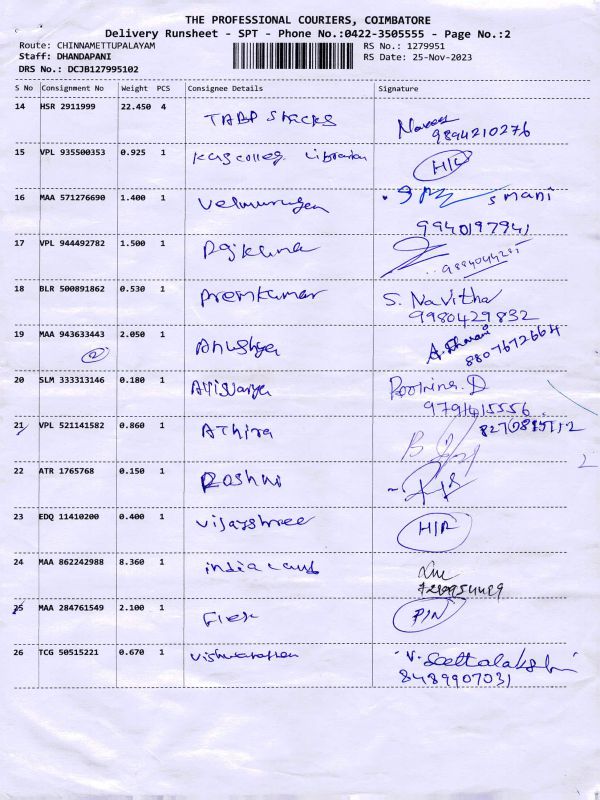 THE PROFESSIONAL COURIERS, COIMBATORE
Delivery Runsheet - SPT - Phone No.:0422-3505555 - Page No.:2
Route: CHINNAMETTUPALAYAM RS No.: 1279951
Staff: DHANDAPANI RS Date: 25-Nov-2023
DRS No.: DCJB127995102
S No Consignment No Weight PCS Consignee Details Signature
14 HSR 2911999 22.450 4 TABP Snacks Naveen
9894210276
15 VPL 935500353 0.925 1 college Librarian
16 MAA 571276690 1.400 1 Velmurugan S mani
9940197941
17 VPL 944492782 1.500 1
18 BLR 500891862 0.530 1 Premkumar S. Navitha
9980429832
19 MAA 943633443 2.050 1 Anushya A. Dharani
2 8807672664
20 SLM 333313146 0.180 1
21 VPL 521141582 0.860 1 Athira
22 ATR 1765768 0.150 1 Roshni
23 EDQ 11410200 0.400 1 Vijayshree
24 MAA 862242988 8.360 1 india Land
25 MAA 284761549 2.100 1
26 TCG 50515221 0.670 1 V. Seethalakshmi
8489907031